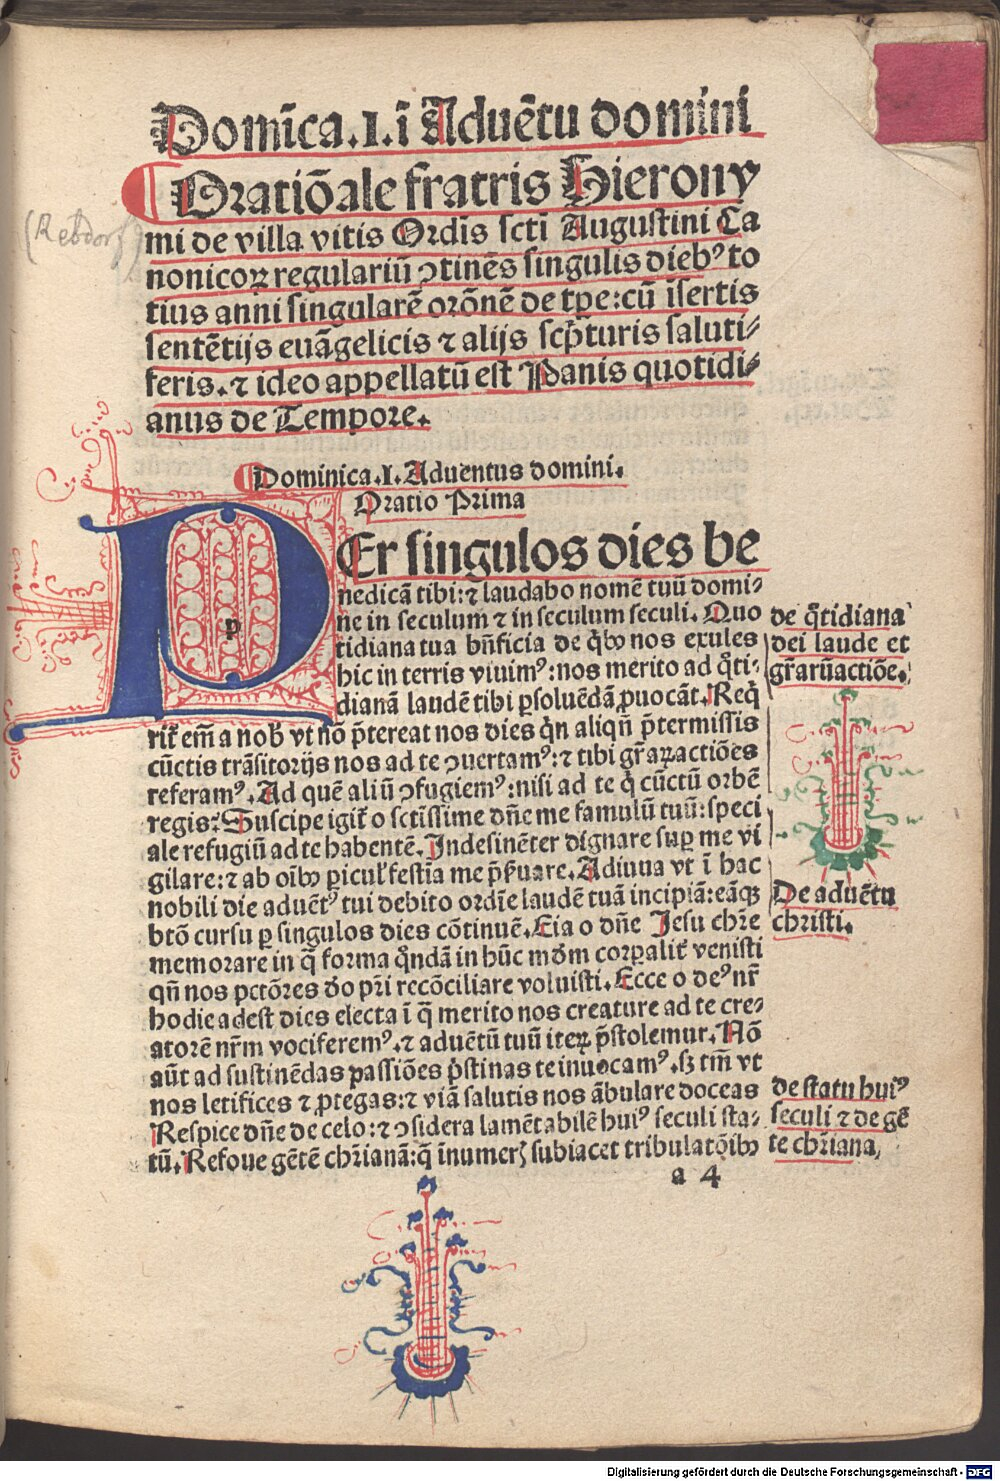 Domīca.I.ī Aduētu domini
Oratiōale fratris Hierony
(Rebdorf)
mi de villa vitis Ordīs scti Augustini Ca
nonicoꝝ regulariū ꝯtinēs singulis diebꝰ to
tius anni singularē orōnē de tꝑe: cū īsertis
sentētijs euāgelicis ⁊ alijs scp̄turis saluti⸗
feris. ⁊ ideo appellatū est Panis quotidi⸗
anus de Tempore.
Dominica.I.Aduentus domini.
Oratio Prima
PEr singulos dies be
nedicā tibi: ⁊ laudabo nomē tuū domi⸗
ne in seculum ⁊ in seculum seculi. Quo
tidiana tua bn̄ficia de q̄bꝰ nos exules
hic in terris viuimꝰ: nos merito ad q̄ti⸗
dianā laudē tibi ꝑsoluēdā ꝓuocāt. Req̄
rit̄ em̄ a nob̄ vt nō p̄tereat nos dies q̇n aliqn̄ p̄termissis
cūctis trāsitorijs nos ad te ꝯuertamꝰ: ⁊ tibi gr̄aꝝ actiōes
referamꝰ. Ad quē aliū ꝯfugiemꝰ: nisi ad te q̇ cūctū orbē
regis? Suscipe igit̄ o sctīssime dn̄e me famulū tuū: speci
ale refugiū ad te habentē. Indesinēter dignare suꝑ me vi
gilare: ⁊ ab oībꝰ ꝑicul̄ festīa me p̄ẜuare. Adiuua vt ī hac
nobili die aduētꝰ tui debito ordīe laudē tuā incipiā: eāqꝫ
btō cursu ꝑ singulos dies cōtinuē. Eia o dn̄e Iesu chr̄e
memorare in q̄ forma q̇ndā in hūc mōm corꝑalit̄ venisti
qn̄ nos pctōres deo pr̄i recōciliare voluisti. Ecce o deꝰ nr̄
hodie adest dies electa ī q̄ merito nos creature ad te cre⸗
atorē nr̄m vociferemꝰ. ⁊ aduētū tuū iteꝝ p̄stolemur. Nō
aūt ad sustinēdas passiōes ṗstinas te inuocamꝰ. sꝫ tm̄ vt
nos letifices ⁊ ꝓtegas: ⁊ viā salutis nos ābulare doceas
Respice dn̄e de celo: ⁊ ꝯsidera lamētabilē huiꝰ seculi sta⸗
tū. Refoue gētē chr̄ianā: q̄ īnumerꝭ subiacet tribulatōībꝰ
a 4
de q̄tidiana
dei laude et
gr̄arū actiōe.
De aduētu
christi.
de statu huiꝰ
seculi ⁊ de gē
te chr̄iana,
Digitalisierung gefördert durch die Deutsche Forschungsgemeinschaft - DFG